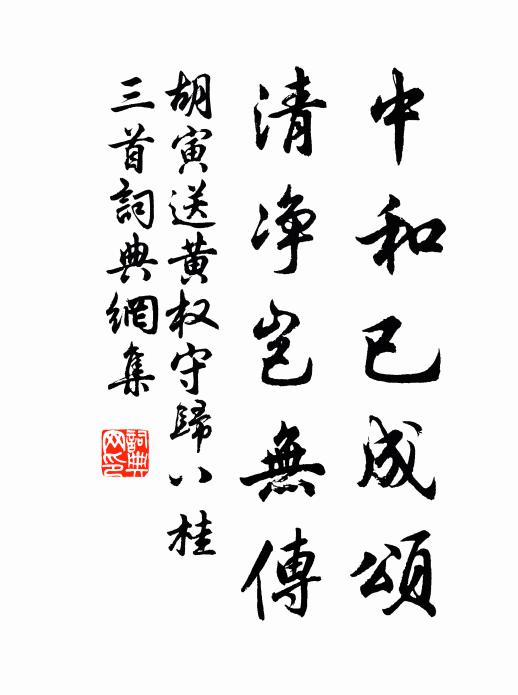 中和已成頌
清净豈無傳
胡寅送黄权守歸八桂
三首詞典網集
詞典网印